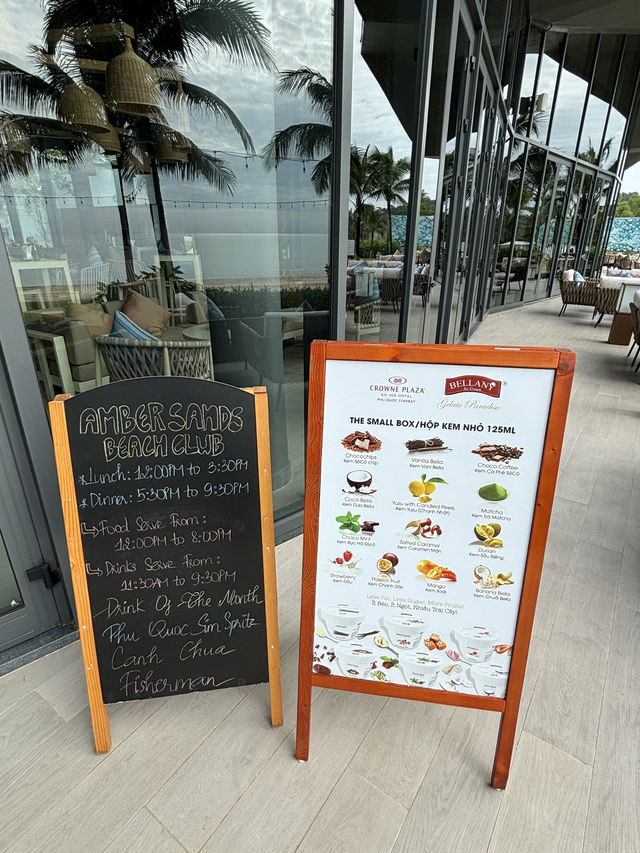 AMBER SANDS
BEACH CLUB
*Lunch: 12:00PM to 3:30PM
*Dinner: 5:30PM to 9:30PM
Food Serve From:
12:00PM to 8:00PM
Drinks Serve From:
11:30AM to 9:30PM
Drink Of The Month
Phu Quoc Sim Spritz
Canh Chua
Fisherman
CROWNE PLAZA
AN IHG HOTEL
PHU QUOC STARBAY
BELLANY
Ice Cream
Gelato Paradise
THE SMALL BOX/HỘP KEM NHỎ 125ML
Chocochips
Kem Sôcô chip
Vanilla Bella
Kem Vani Bella
Choco Coffee
Kem Cà Phê Sôcô
Coco Bella
Kem Dừa Bella
Yuzu with Candied Peels
Kem Yuzu (Chanh Nhật)
Matcha
Kem Trà Matcha
Choco Mint
Kem Bạc Hà Sôcô
Salted Caramel
Kem Caramen Mặn
Durian
Kem Sầu Riêng
Strawberry
Kem Dâu
Passion Fruit
Kem Chanh Dây
Mango
Kem Xoài
Banana Bella
Kem Chuối Bella
Less Fat, Less Sugar, More Fruits!
Ít Béo, Ít Ngọt, Nhiều Trái Cây!